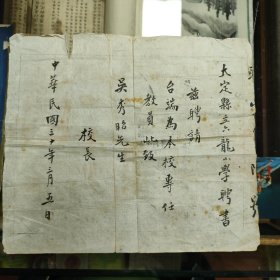 大定縣立六龍小學聘書
茲聘請
台端為本校專任
教員此致
吳秀昭先生
校長
中華民國三十年二月五日